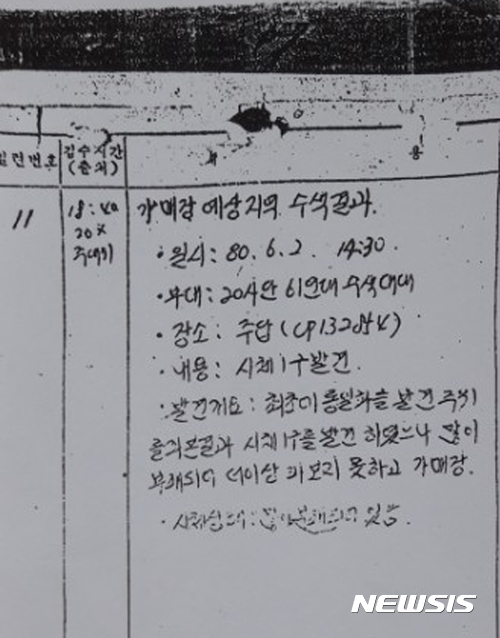 일련번호 접수시간 내 용
(출처)
11 18:40 가매장 예상지역 수색결과.
20사
· 일시: 80. 6. 2. 14:30.
· 부대: 20사단 61연대 수색대대
· 장소: 주답 (CP
· 내용: 시체 1구 발견.
· 발견개요: 최초에 통일화를 발견 주위
를 파본결과 시체 1구를 발견 하였으나 많이
부패되어 더이상 파보지 못하고 가매장.
· 시체상태: 많이 부패되어 있음.
NEWSIS